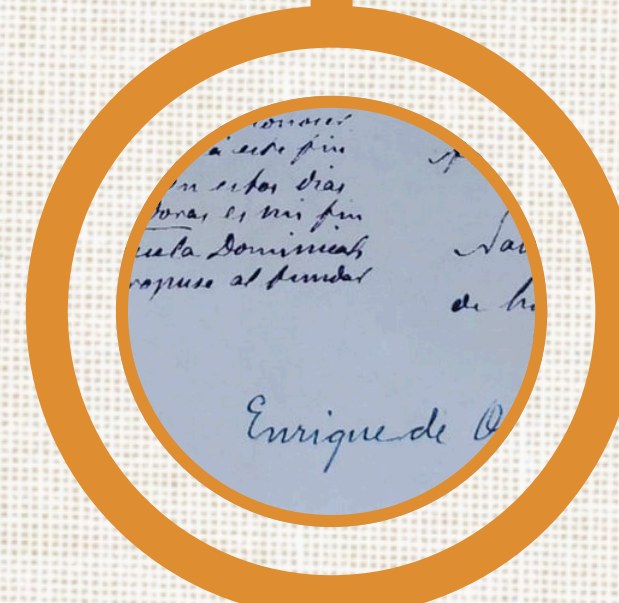 conocer
á este fin
en estos dias
doras es mi fin
uela Dominical
ropuse al fundar
de
Enrique de O